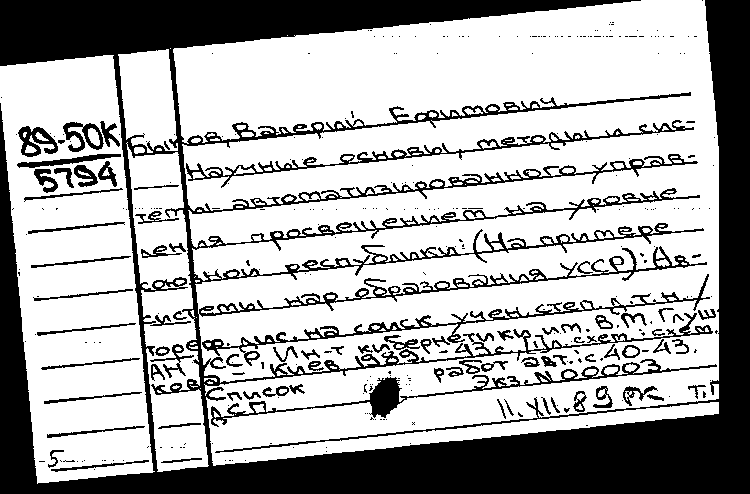 89-50К
5794
Быков, Валерий Ефимович.
Научные основы, методы и сис-
темы автоматизированного управ-
ления просвещением на уровне
союзной республики: (На примере
системы нар. образования УССР): Ав-
тореф. дис. на соиск. учен. степ. д.т.н. /
АН УССР, Ин-т кибернетики им. В.М. Глуш-
кова. Киев, 1989. - 43 с., ил. схем.; схем.
Список работ авт.: с. 40-43.
ДСП. Экз. N 00003.
11.XII.89 РЖ Т.П
5